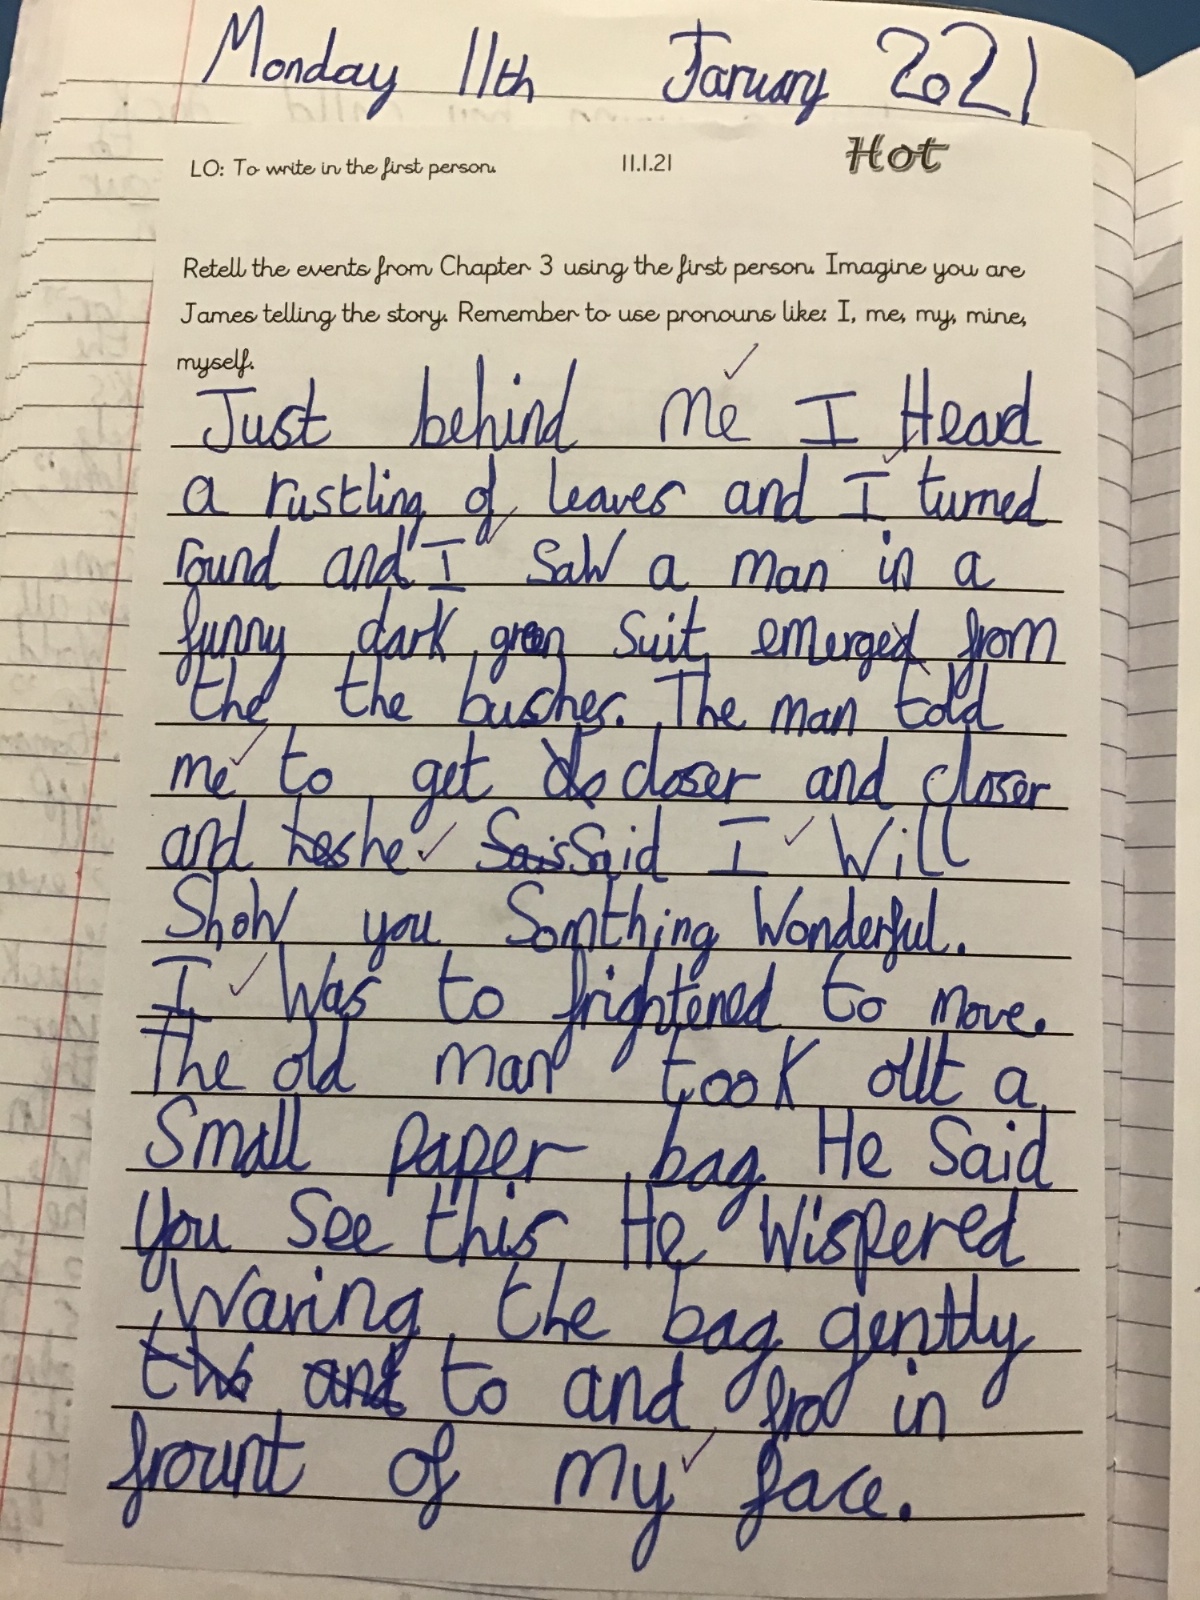 Monday 11th January 2021
LO: To write in the first person. 11.1.21 Hot
Retell the events from Chapter 3 using the first person. Imagine you are
James telling the story. Remember to use pronouns like: I, me, my, mine,
myself.
Just behind me I Heard
a rustling of leaves and I turned
round and I saw a man in a
funny dark green suit emerged from
the the bushes. The man told
me to get closer and closer
and he Said I Will
Show you Somthing Wonderful.
I Was to frightened to move.
The old man took out a
Small paper bag He Said
you See this He Wispered
Waving the bag gently
to and fro in
frount of my face.